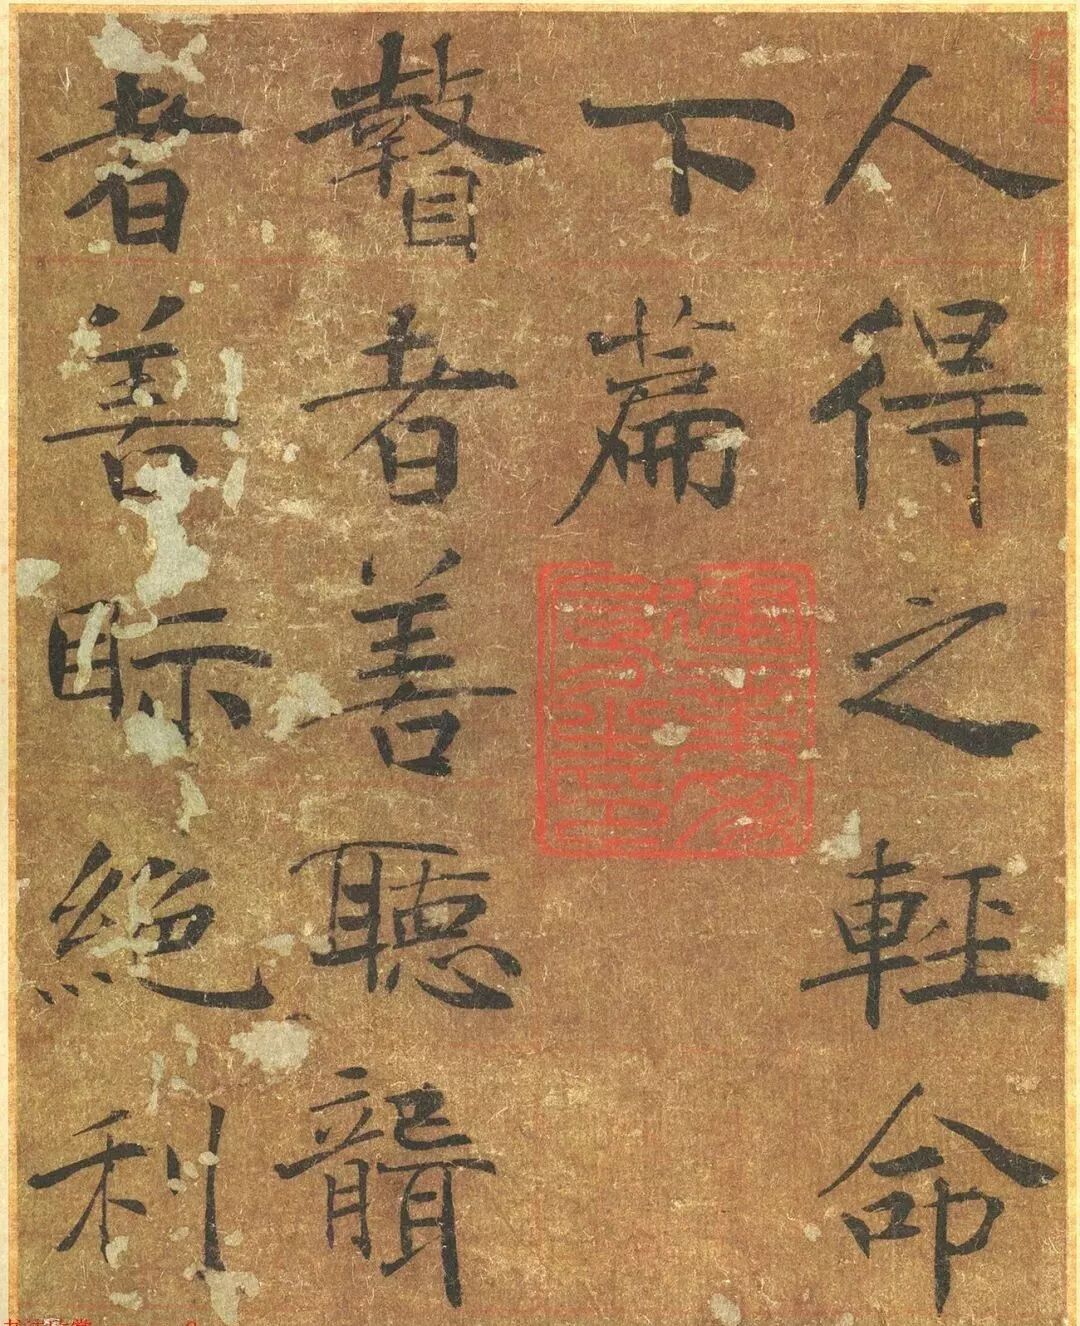 人得之輕命
下篇
瞽者善聽聾
者善眡絕利